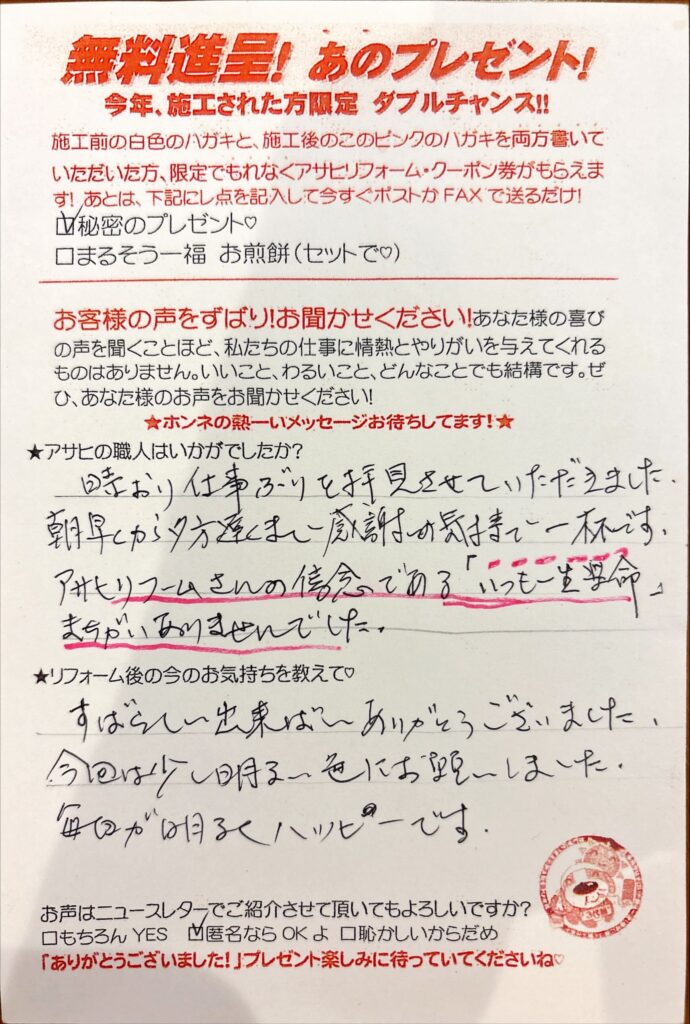 無料進呈! あのプレゼント!
今年、施工された方限定 ダブルチャンス!!
施工前の白色のハガキと、施工後のこのピンクのハガキを両方書いて
いただいた方、限定でもれなくアサヒリフォーム・クーポン券がもらえま
す! あとは、下記にレ点を記入して今すぐポストか FAX で送るだけ!
☑秘密のプレゼント♡
□まるそう一福 お煎餅(セットで♡)
お客様の声をずばり!お聞かせください!あなた様の喜び
の声を聞くことほど、私たちの仕事に情熱とやりがいを与えてくれる
ものはありません。いいこと、わるいこと、どんなことでも結構です。ぜ
ひ、あなた様のお声をお聞かせください!
★ホンネの熱ーいメッセージお待ちしてます!★
★アサヒの職人はいかがでしたか?
時おり仕事ぶりを拝見させていただきました.
朝早くから夕方遅くまで感謝の気持で一杯です.
アサヒリフォームさんの信念である「いつも一生懸命」
まちがいありませんでした.
★リフォーム後の今のお気持ちを教えて♡
すばらしい出来ばいありがとうございました.
今回は少し明るい色にお願いしました.
毎日が明るくハッピーです.
お声はニュースレターでご紹介させて頂いてもよろしいですか?
□もちろん YES ☑匿名なら OK よ □恥かしいからだめ
「ありがとうございました!」プレゼント楽しみに待っていてくださいね♡